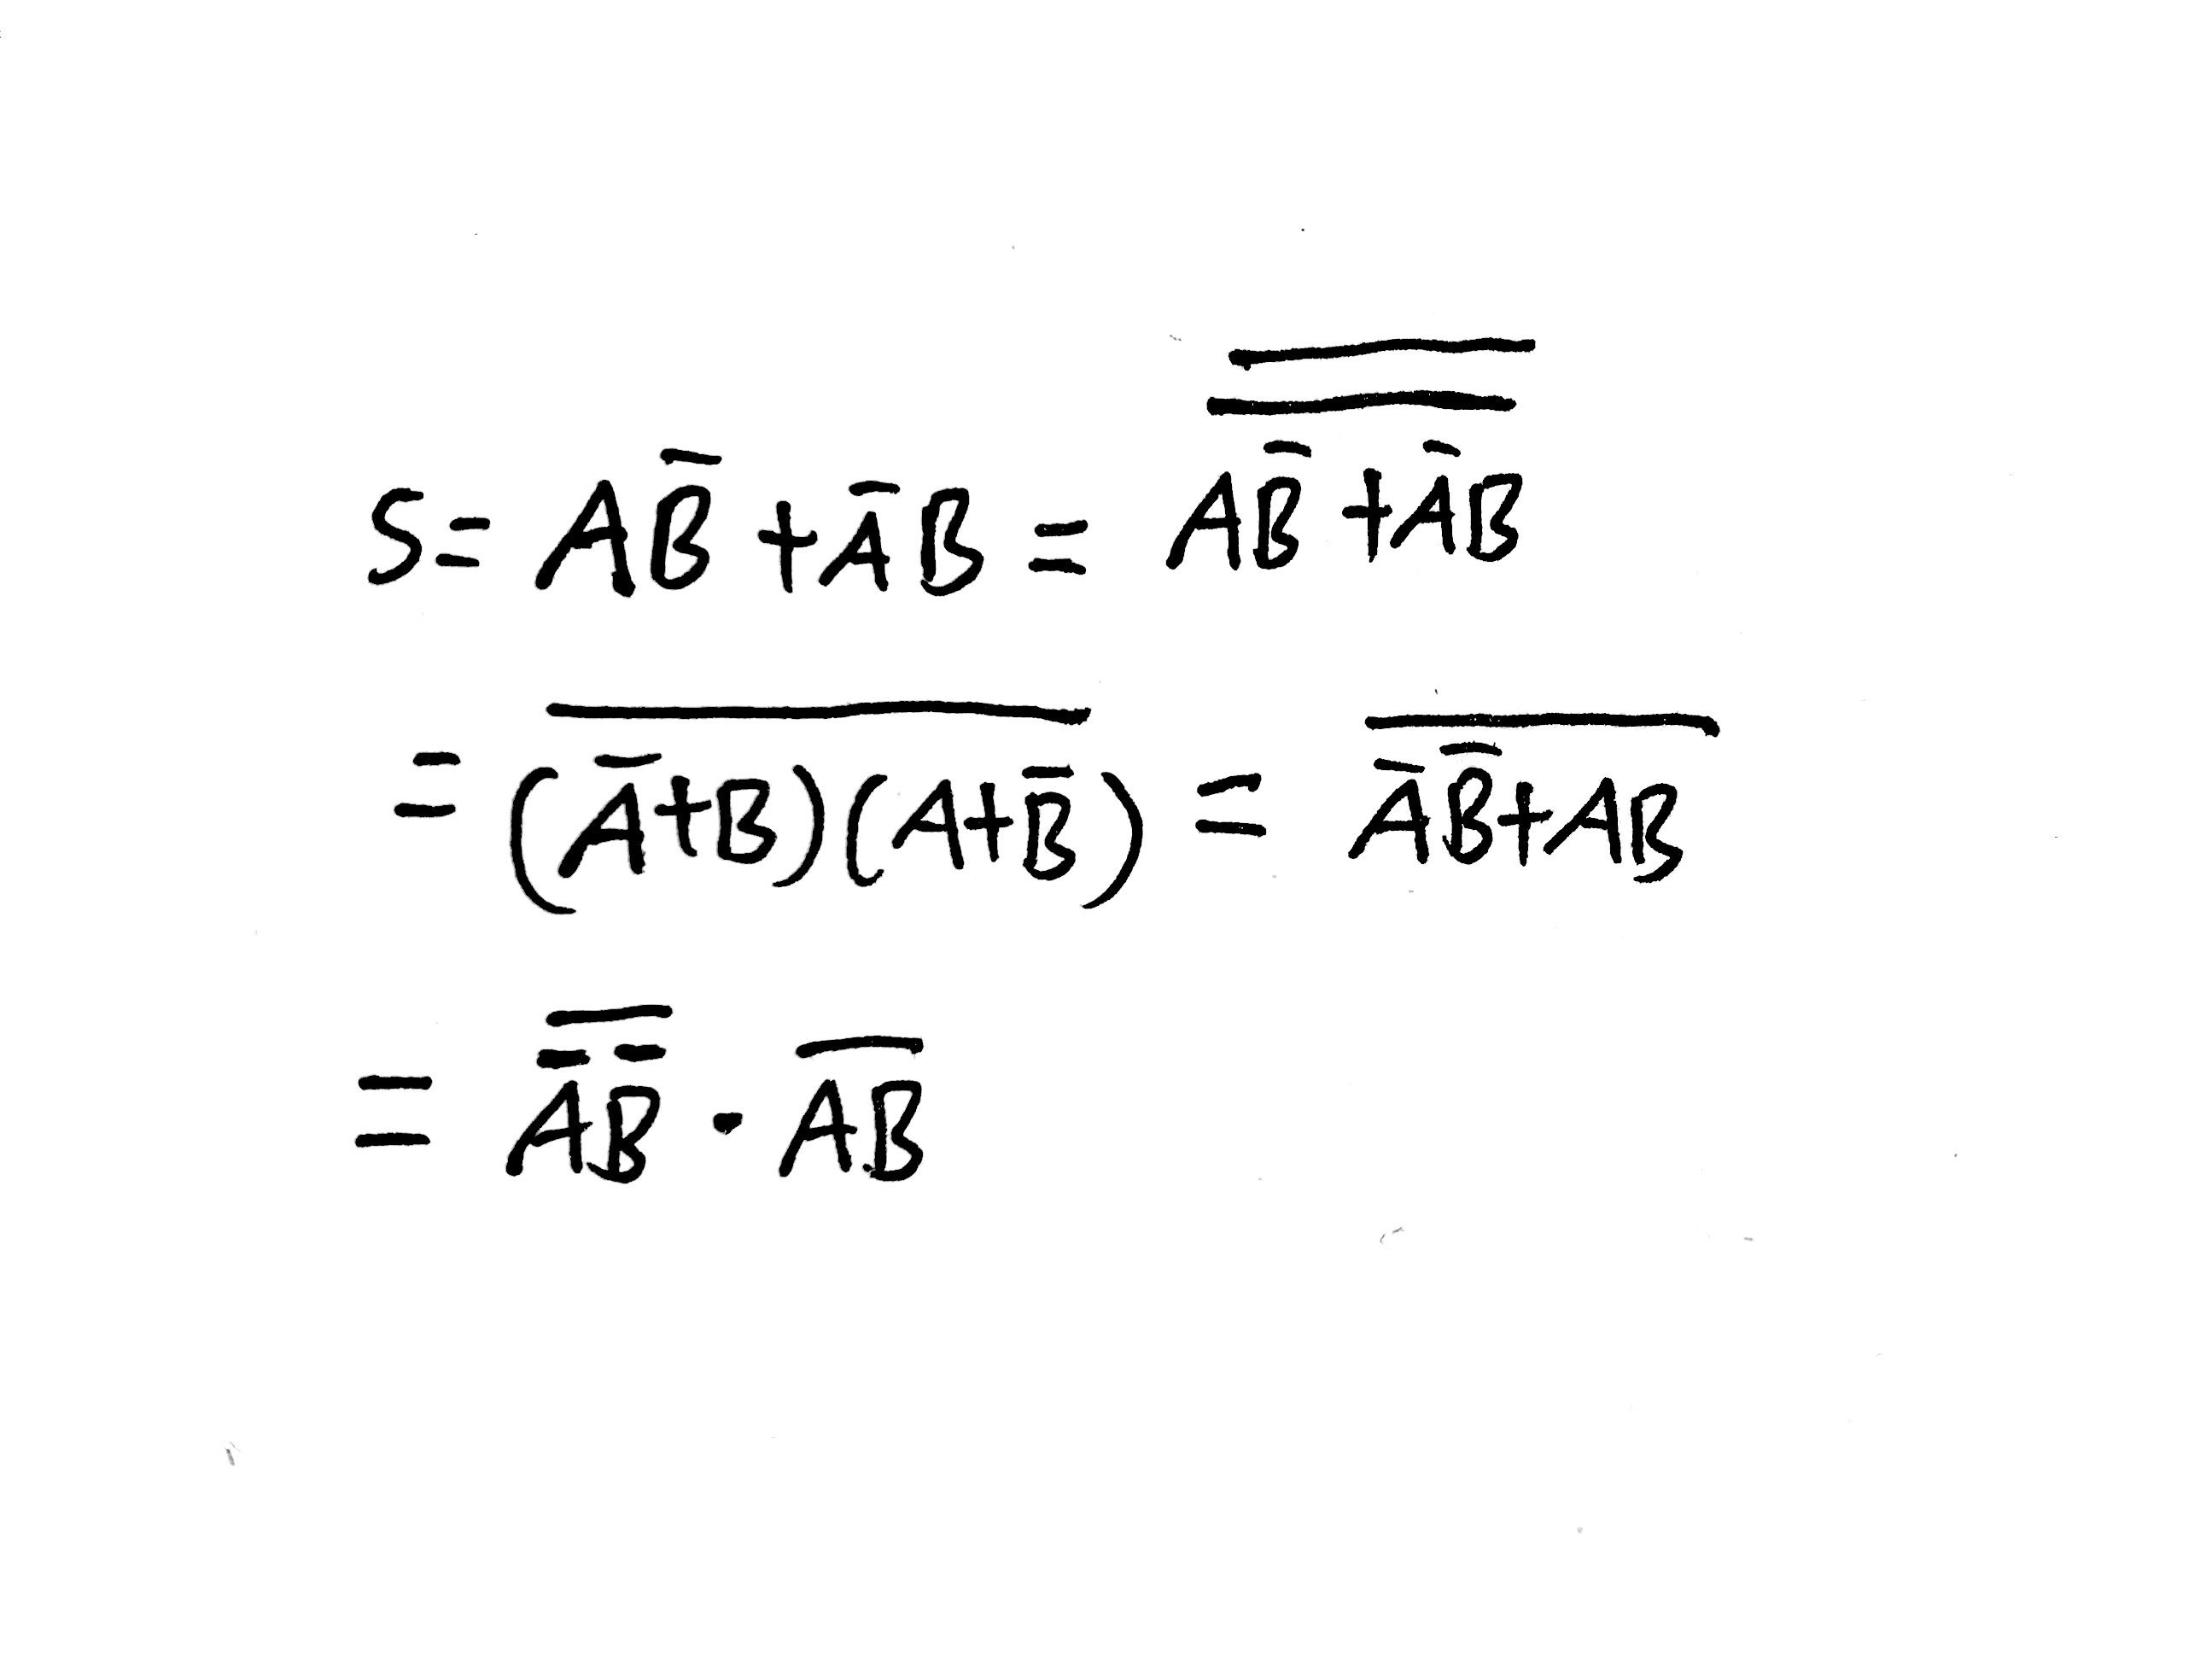 S = AB̅ + A̅B = \overline{\overline{AB̅ + A̅B}}
= \overline{(A̅+B)(A+B̅)} = \overline{A̅B̅+AB}
= \overline{A̅B̅} · \overline{AB}